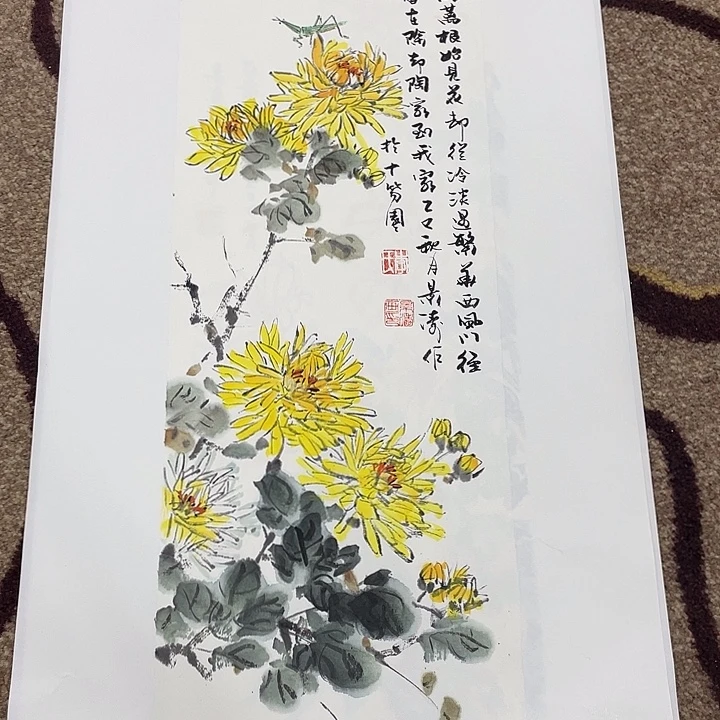 蒿根始見花却從冷淡過繁華西風門徑
在除却陶家到我家乙巳秋月景濤作
於十笏園